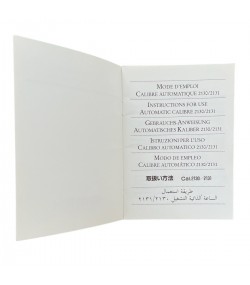 MODE D'EMPLOI
CALIBRE AUTOMATIQUE 2130/2131
INSTRUCTIONS FOR USE
AUTOMATIC CALIBRE 2130/2131
GEBRAUCHS-ANWEISUNG
AUTOMATISCHES KALIBER 2130/2131
ISTRUZIONI PER L'USO
CALIBRO AUTOMATICO 2130/2131
MODO DE EMPLEO
CALIBRE AUTOMÁTICO 2130/2131
取扱い方法 Cal.2130
طريقة استعمال
الساعة الذاتية التشغيل ٢١٣٠/٢١٣١